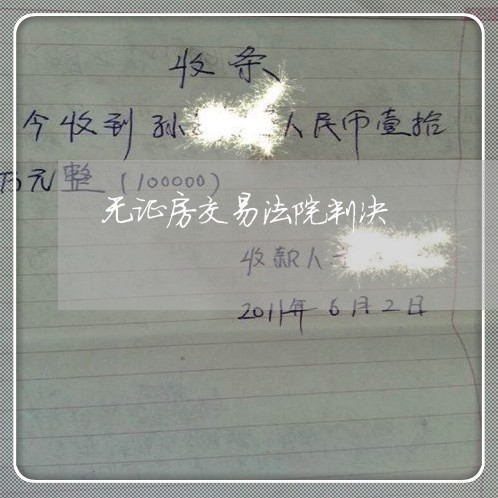 收条
今收到孙人民币壹拾
万元整(100000)
无证房交易法院判决
收款人
2011年6月2日